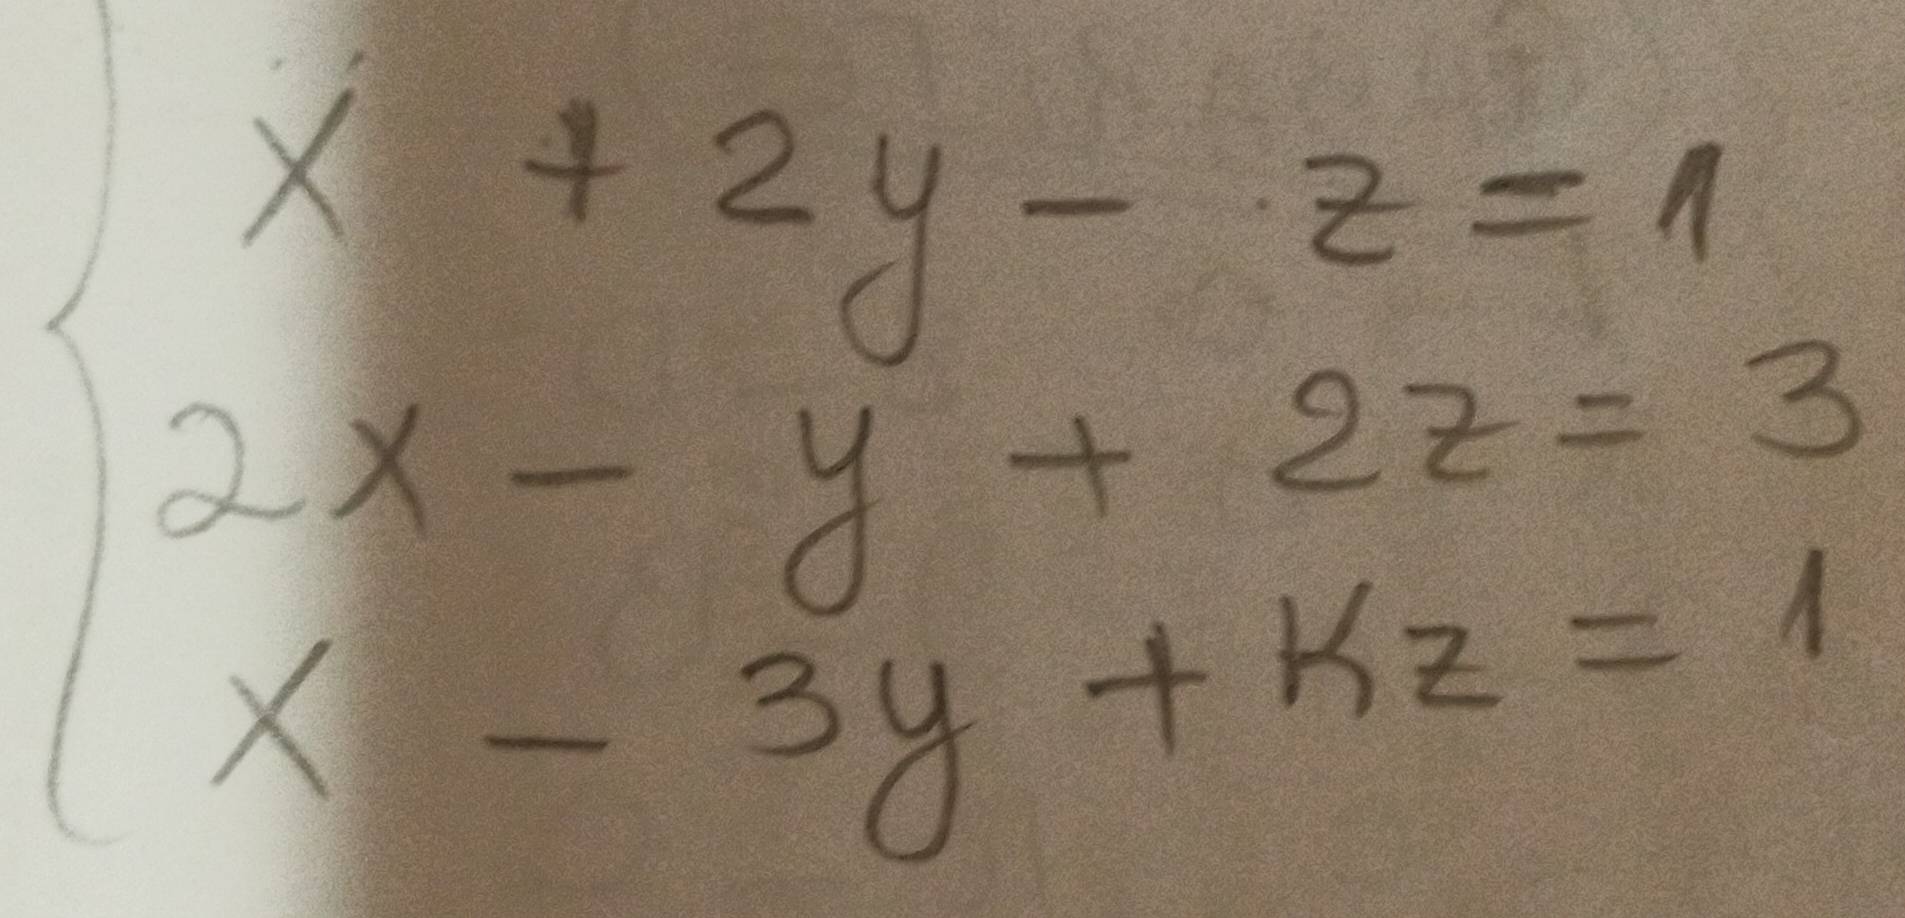 x + 2y - z = 1
2x - y + 2z = 3
x - 3y + Kz = 1